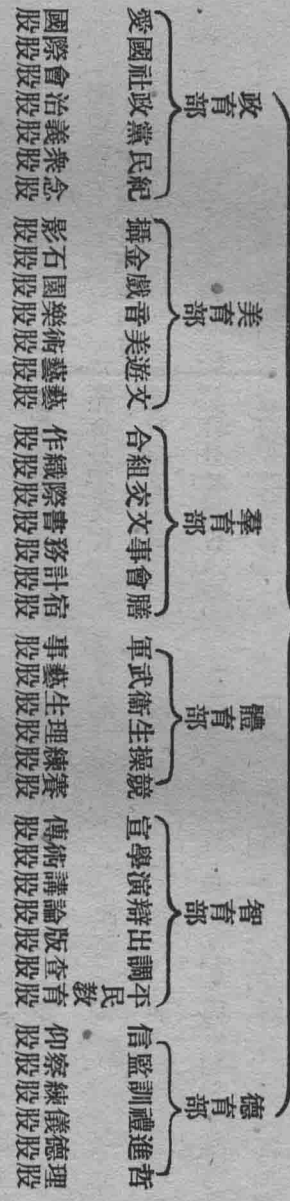 德育部
哲理股
進德股
禮儀股
訓練股
監察股
信仰股
智育部
平民教育股
調查股
出版股
辯論股
演講股
學術股
宣傳股
體育部
競賽股
操練股
生理股
衞生股
武藝股
軍事股
羣育部
膳宿股
會計股
事務股
文書股
交際股
組織股
合作股
美育部
文藝股
遊藝股
美術股
音樂股
戲園股
金石股
攝影股
政育部
紀念股
民衆股
黨義股
政治股
社會股
國際股
愛國股